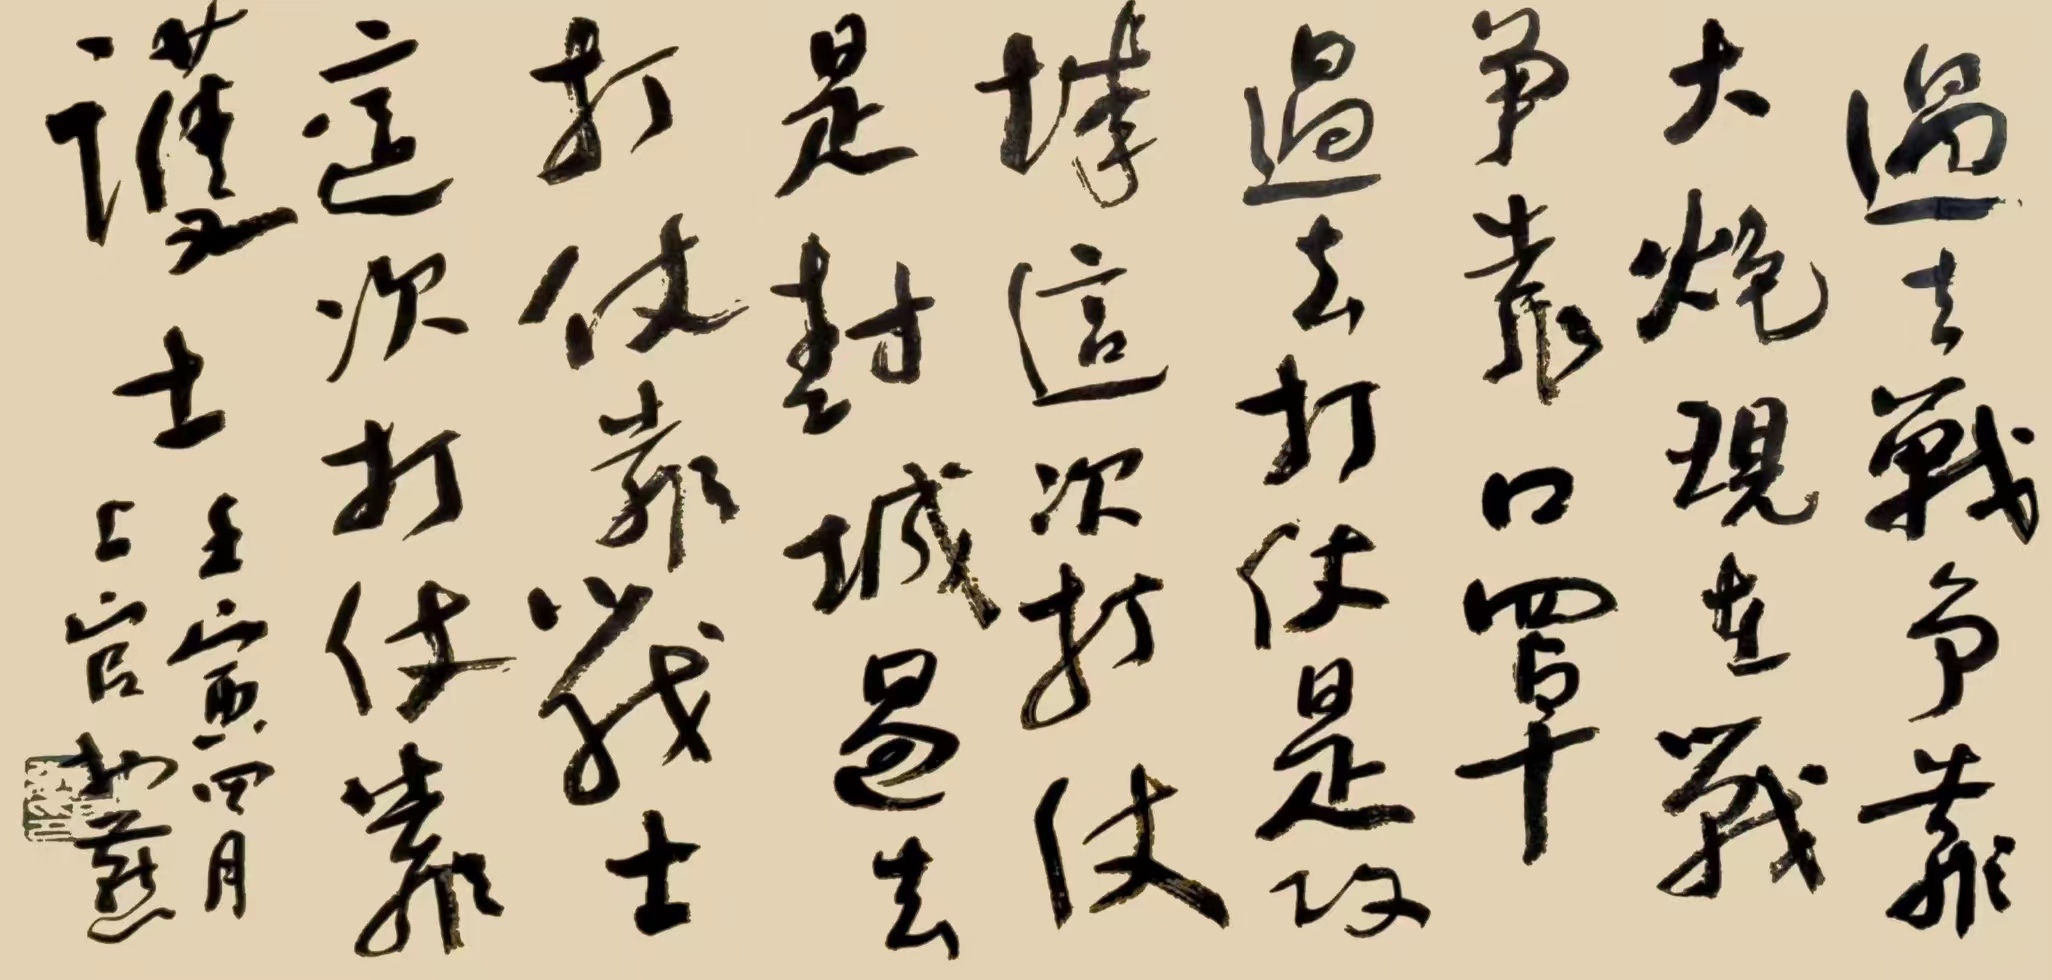 過去戰争靠
大炮現在戰
争靠口罩
過去打仗是攻
城這次打仗
是封城過去
打仗靠戰士
這次打仗靠
護士
壬寅四月
上官